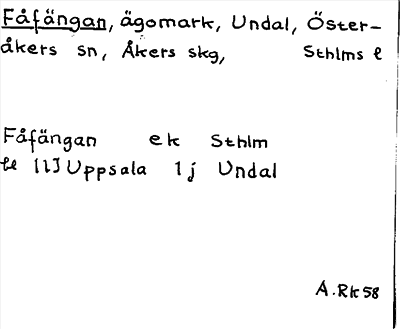 Fåfängan, ägomark, Undal, Öster-
åkers sn, Åkers skg, Sthlms l
Fåfängan ek Sthlm
ll [1] Uppsala 1 j Undal
A.Rk 58